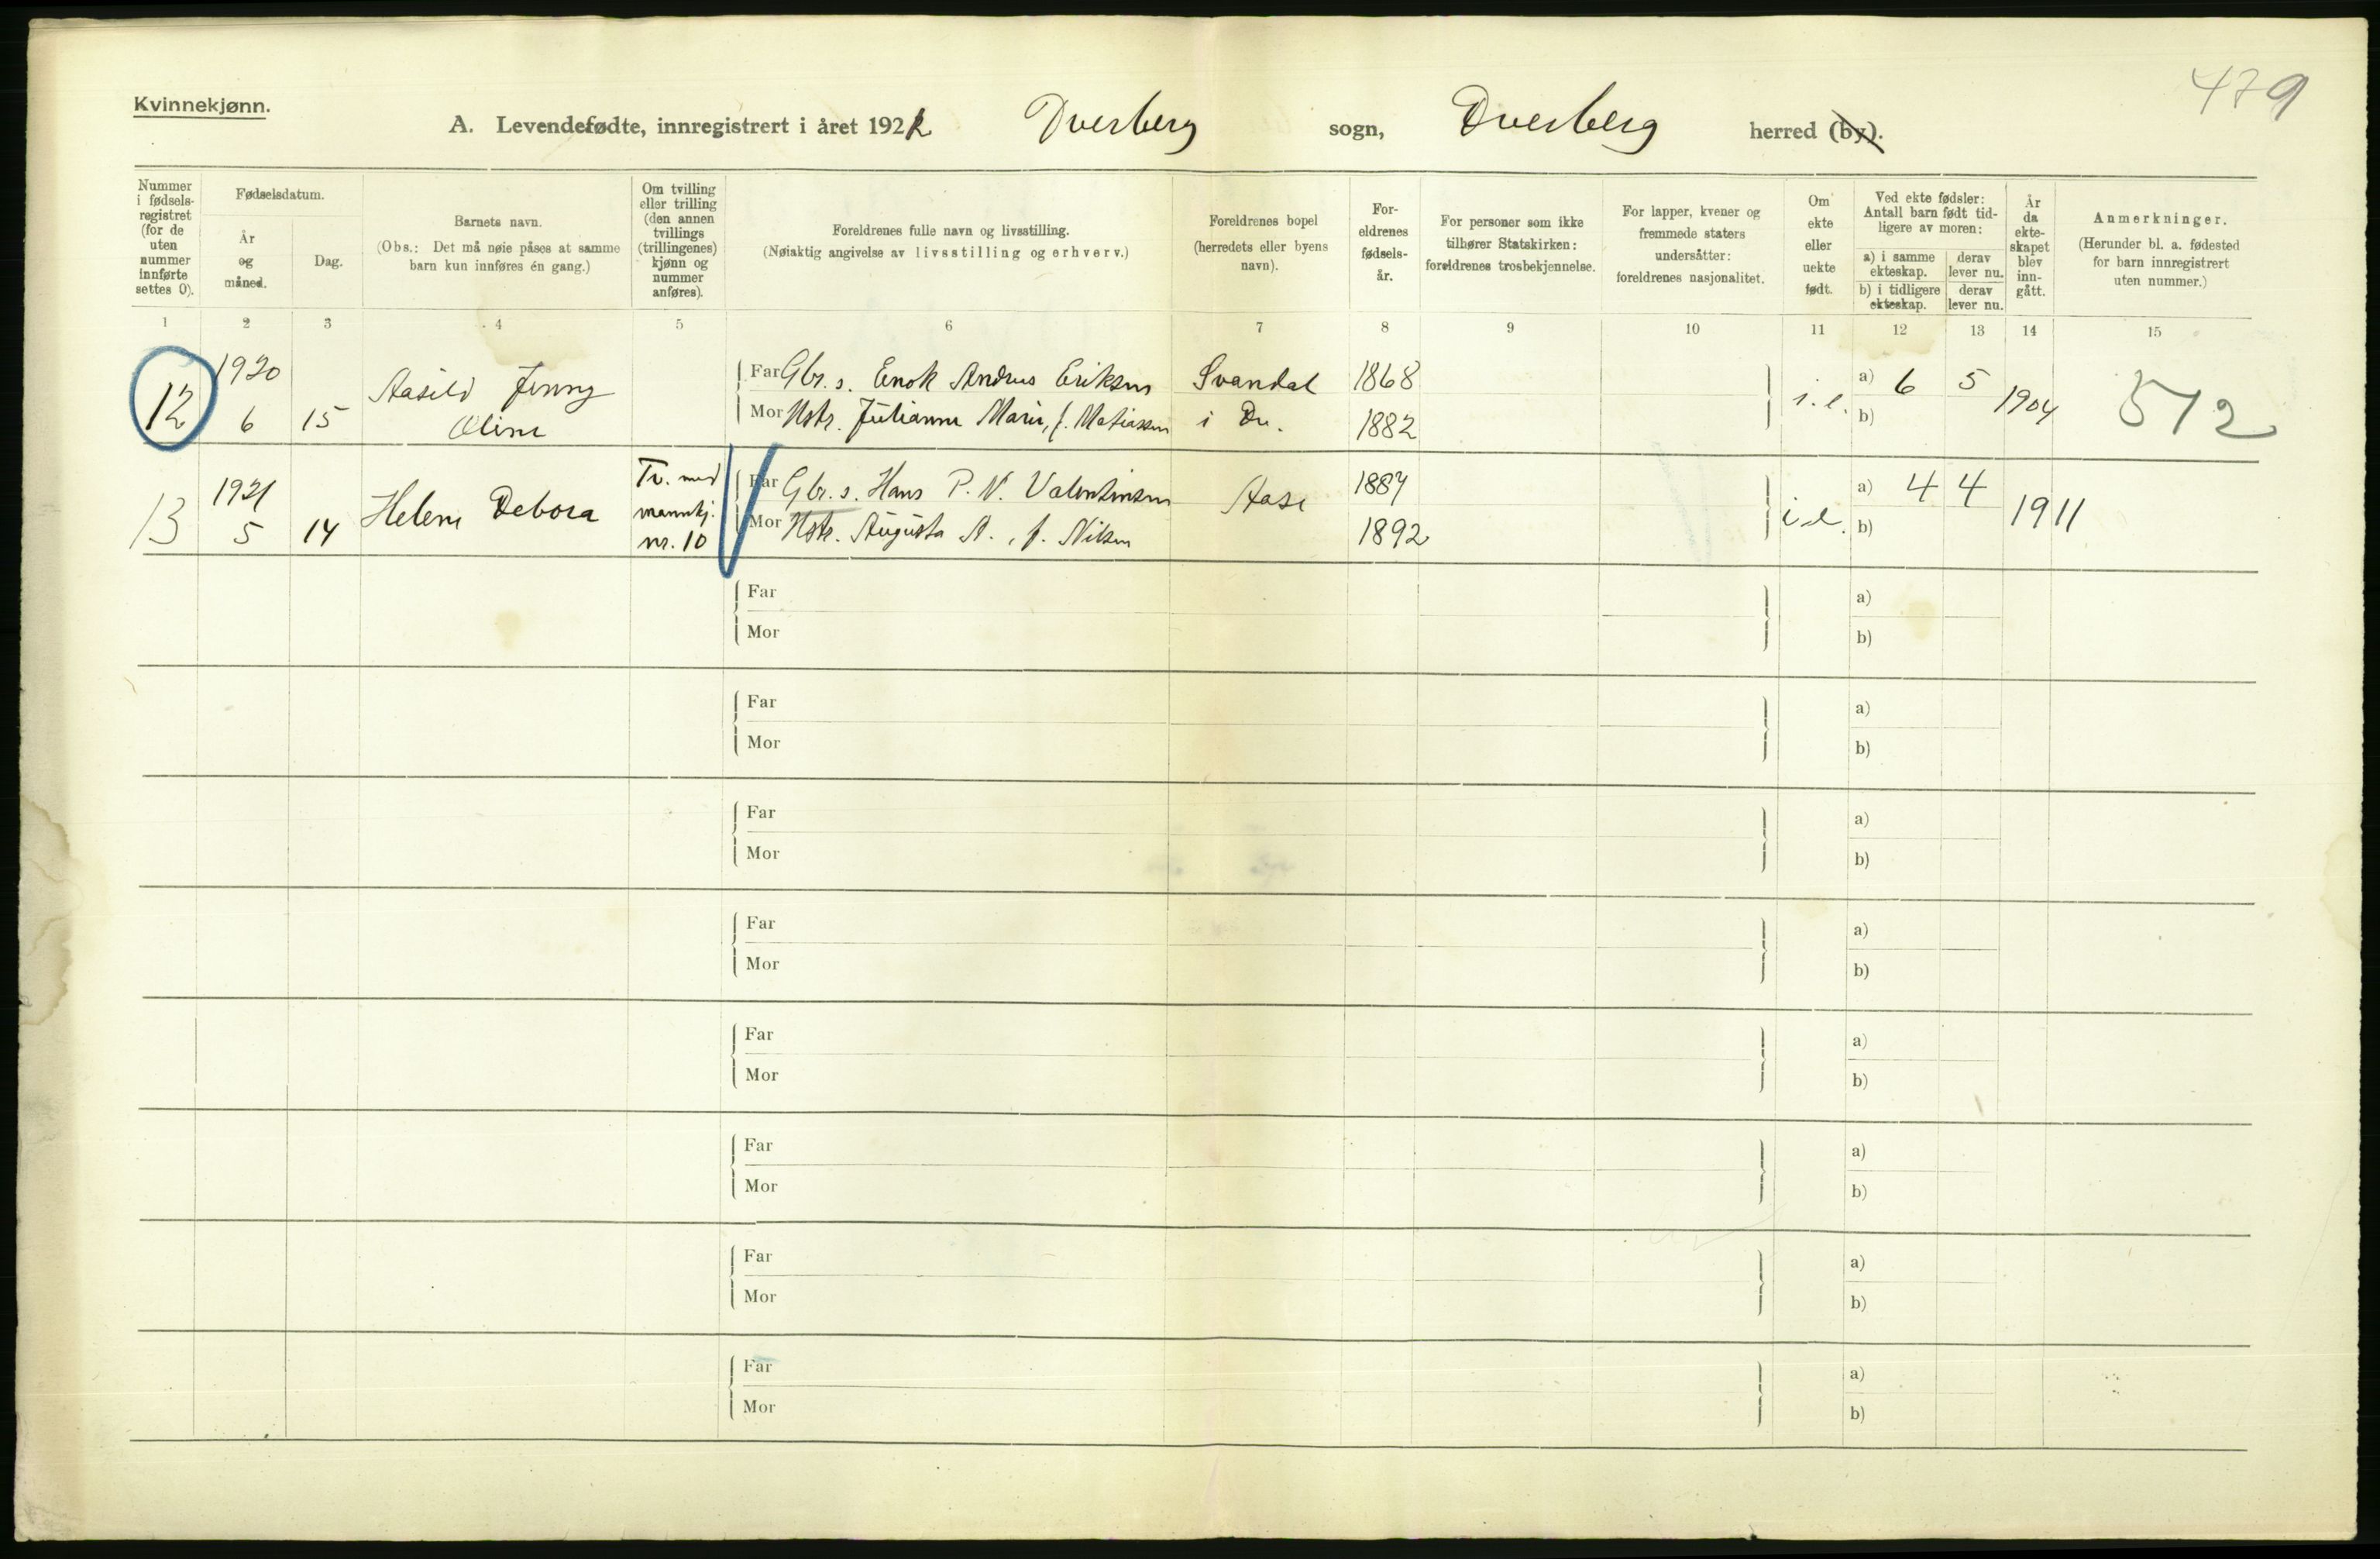 479
Kvinnekjønn.
A. Levendefødte, innregistrert i året 192 Dverberg sogn, Dverberg herred (by).
Nummer i fødsels-registret (for de uten nummer innførte settes 0).
Fødselsdatum.
År og måned.
Dag.
Barnets navn.
(Obs.: Det må nøie påses at samme barn kun innføres én gang.)
Om tvilling eller trilling (den annen tvillings (trillingenes) kjønn og nummer anføres).
Foreldrenes fulle navn og livsstilling.
(Nøiaktig angivelse av livsstilling og erhverv.)
Foreldrenes bopel (herredets eller byens navn).
For-eldrenes fødsels-år.
For personer som ikke tilhører Statskirken: foreldrenes trosbekjennelse.
For lapper, kvener og fremmede staters undersåtter: foreldrenes nasjonalitet.
Om ekte eller uekte født.
Ved ekte fødsler: Antall barn født tid-ligere av moren:
a) i samme ekteskap.
derav lever nu.
b) i tidligere ekteskap.
derav lever nu.
År da ekte-skapet blev inn-gått.
Anmerkninger.
(Herunder bl. a. fødested for barn innregistrert uten nummer.)
1 2 3 4 5 6 7 8 9 10 11 12 13 14 15
12 1920 6 15 Aasild Jenny Oline
Far Gbr. s. Enok Andreas Eriksen Svandal 1868
Mor Hstr. Julianne Marie, f. Matiassen i Dv. 1882
a) 6 5
b)
1904 512
13 1921 5 14 Helene Debora Tv. med mannkj. nr. 10
Far Gbr. s. Hans P. N. Valentinsen Aase 1887
Mor Hstr. Augusta A., f. Nilsen 1892
i e.
a) 4 4
b)
1911
Far a)
Mor b)
Far a)
Mor b)
Far a)
Mor b)
Far a)
Mor b)
Far a)
Mor b)
Far a)
Mor b)
Far a)
Mor b)
Far a)
Mor b)